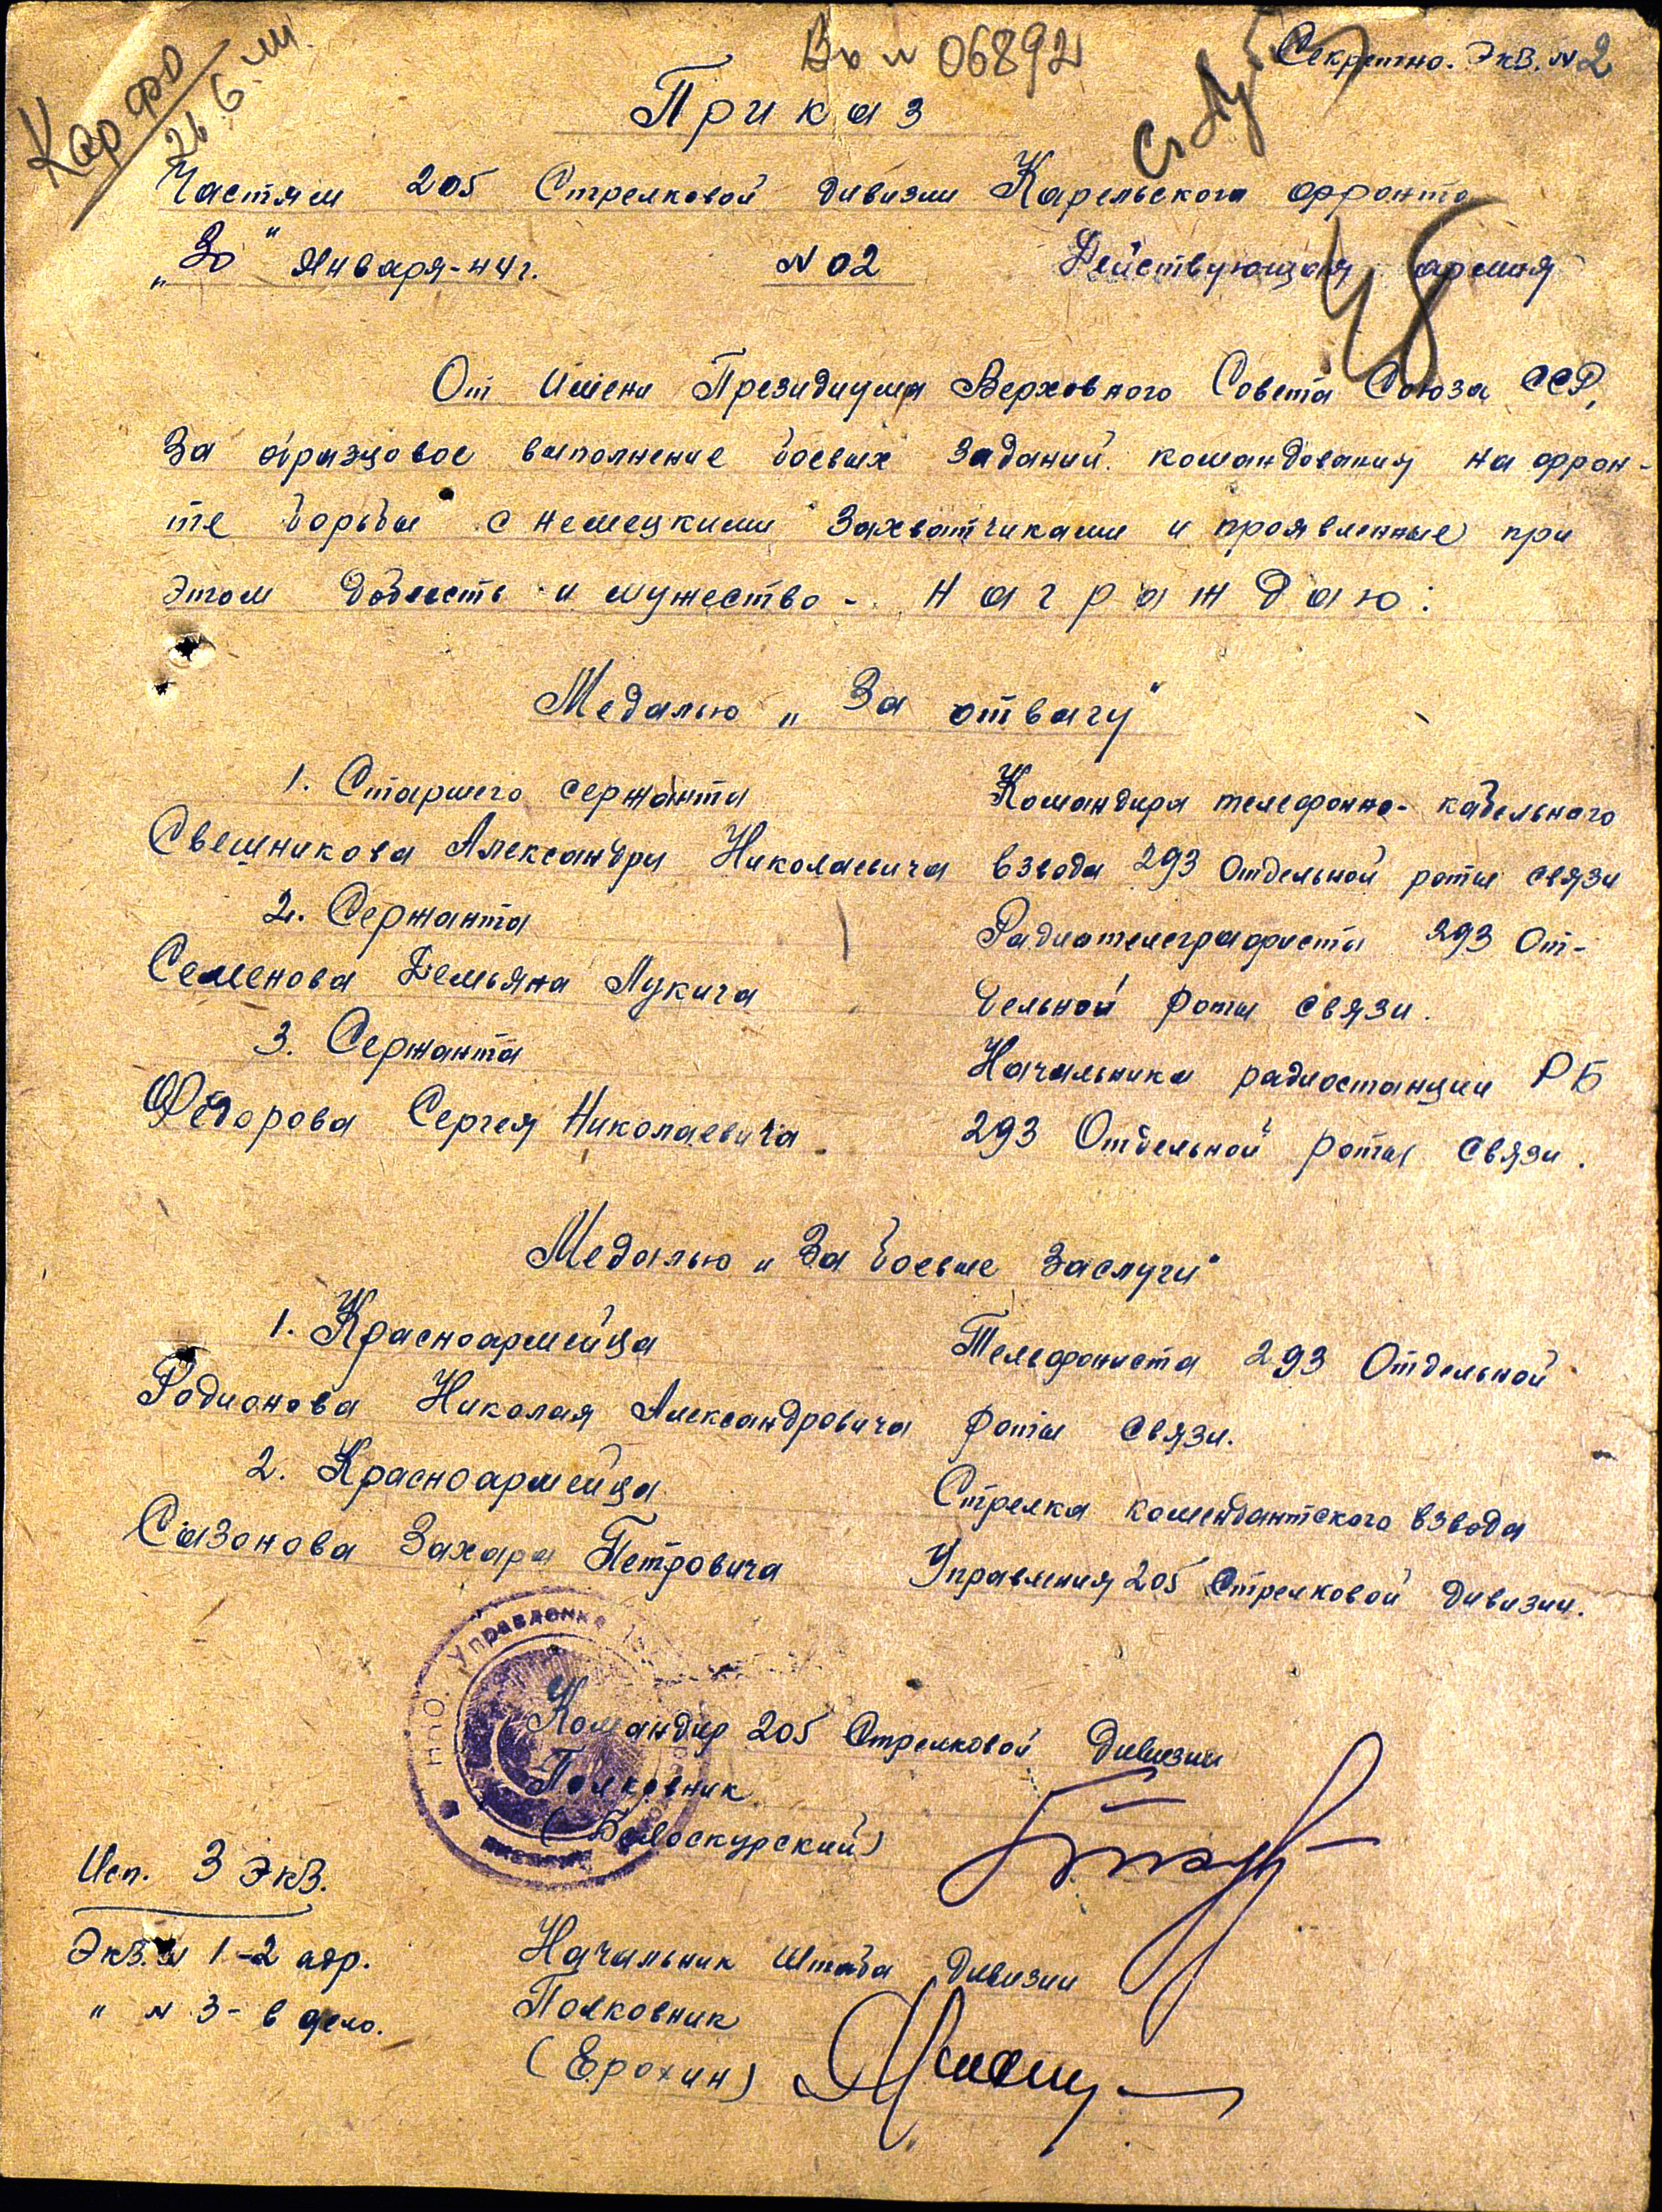 Вх № 06892
Секретно. Экз. № 2
Кар фр
26.6.
Приказ
Частям 205 Стрелковой дивизии Карельского фронта
„30" Января-44г. № 02 Действующая армия
48
От имени Президиума Верховного Совета Союза ССР,
за образцовое выполнение боевых заданий командования на фрон-
те борьбы с немецкими захватчиками и проявленные при
этом доблесть и мужество - награждаю:
Медалью „За отвагу"
1. Старшего сержанта Командира телефонно-кабельного
Свешникова Александра Николаевича взвода 293 Отдельной роты связи
2. Сержанта Радиотелеграфиста 293 От-
Семенова Демьяна Лукича дельной роты связи.
3. Сержанта Начальника радиостанции РБ
Федорова Сергея Николаевича. 293 Отдельной роты связи.
Медалью „За боевые заслуги"
1. Красноармейца Телефониста 293 Отдельной
Родионова Николая Александровича роты связи.
2. Красноармейца Стрелка комендантского взвода
Сазонова Захара Петровича Управления 205 Стрелковой дивизии.
НПО. Управление
Командир 205 Стрелковой дивизии
Полковник
(Белоскурский)
Исп. 3 экз.
Экз. № 1-2 адр.
" № 3- в дело.
Начальник штаба дивизии
Полковник
(Ерохин)